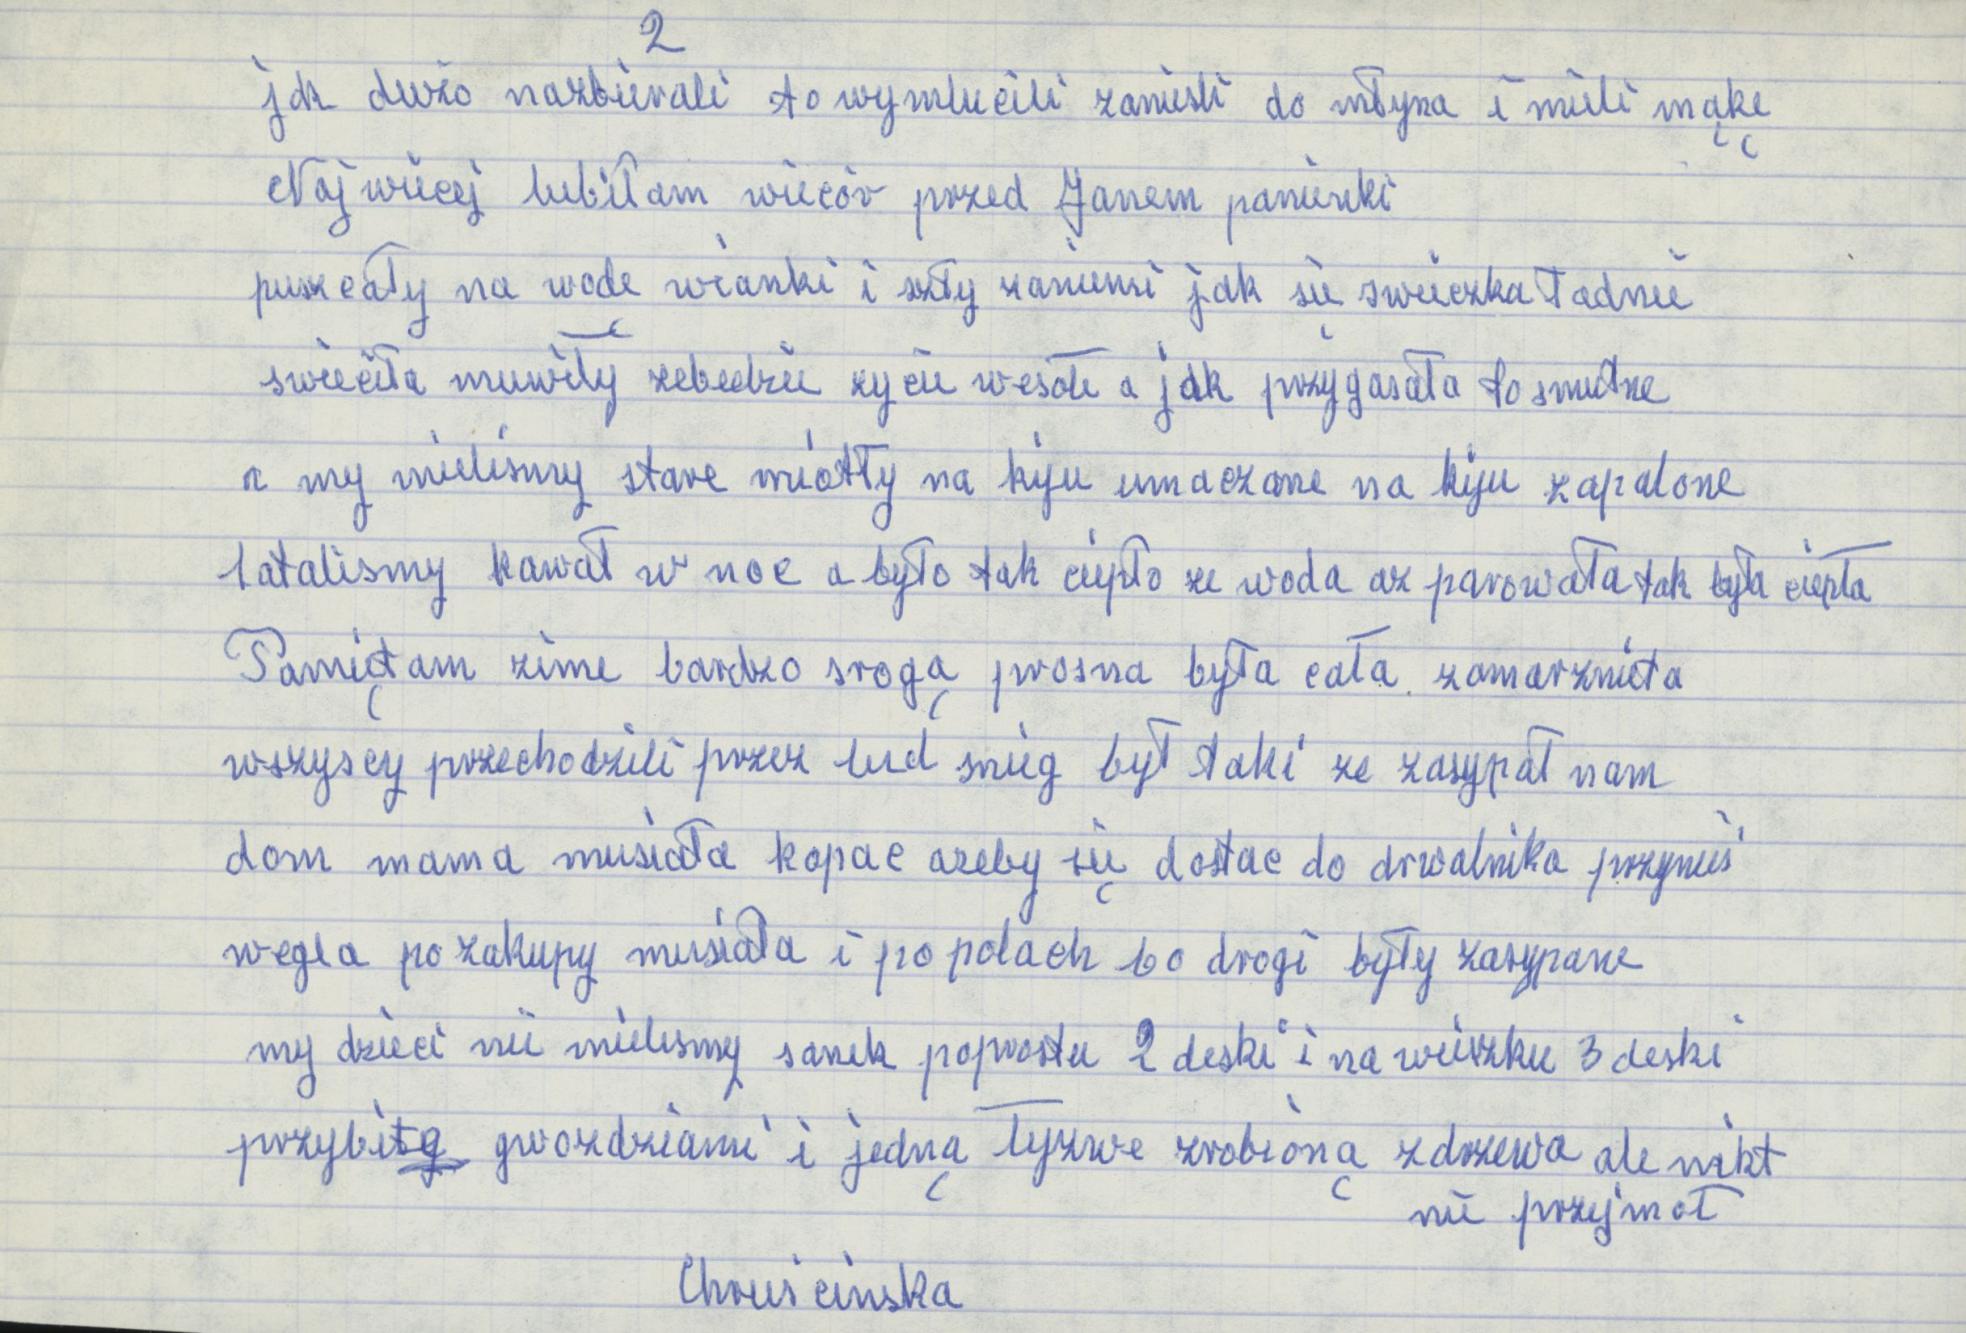 2
jak dużo nazbierali to wymlucili zaniesli do młyna i mieli mąkę
Najwiecej lubiłam wiecór przed Janem panienki
puszcały na wode wianki i szły zaniemi jak sie swieczka ładnie
swieciła muwiły zebedzie zycie wesołe a jak przygasała to smutne
a my mielismy stare miotły na kiju umaczane na kiju zapalone
latalismy kawał w noc a było tak ciepło ze woda az parowała tak była ciepła
Pamiętam zime bardzo srogą prosna była cała zamarznieta
wszyscy przechodzili przez lud snieg był taki ze zasypał nam
dom mama musiała kopac azeby się dostac do drwalnika przynieś
wegla po zakupy musiała i po polach bo drogi były zasypane
my dzieci nie mielismy sanek poprostu 2 deski i na wierzku 3 deski
przybite gwozdziami i jedną łyzwe zrobioną zdrzewa ale nikt
nie przyjmoł
Chruścinska